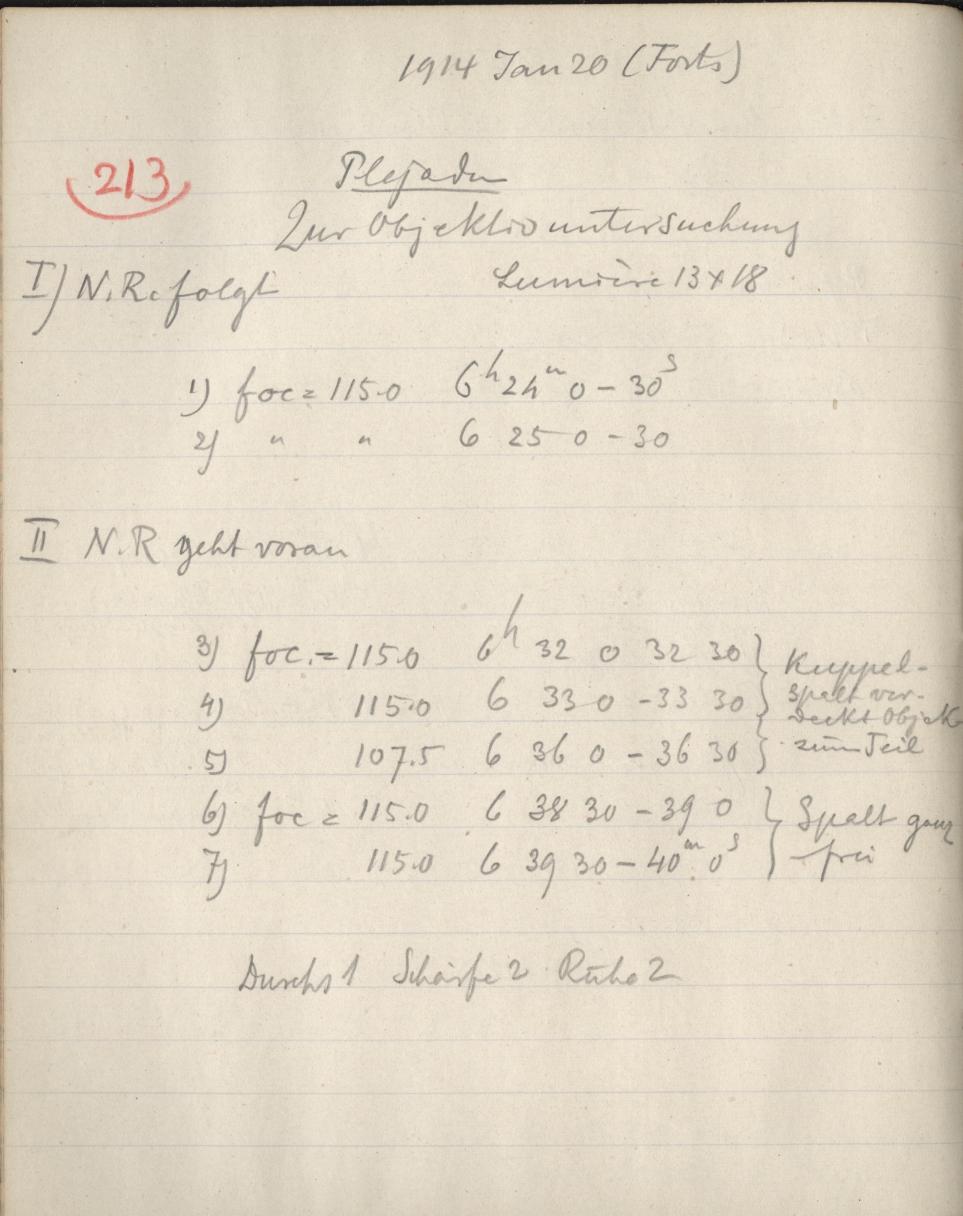 1914 Jan 20 (Forts)
213
Plejaden
Zur Objektivuntersuchung
I) N.R. folgt Lumière 13x18
1) foc = 115.0 6h 24m 0 - 30s
2) " " 6 25 0 - 30
II N.R geht voran
3) foc. = 115.0 6h 32 0 32 30 } Kuppel-
4) 115.0 6 33 0 - 33 30 } spalt ver-
deckt Objek
5) 107.5 6 36 0 - 36 30 } zum Teil
6) foc = 115.0 6 38 30 - 39 0 } Spalt ganz
7) 115.0 6 39 30 - 40m 0s } frei
Durchs 1 Schärfe 2 Ruhe 2